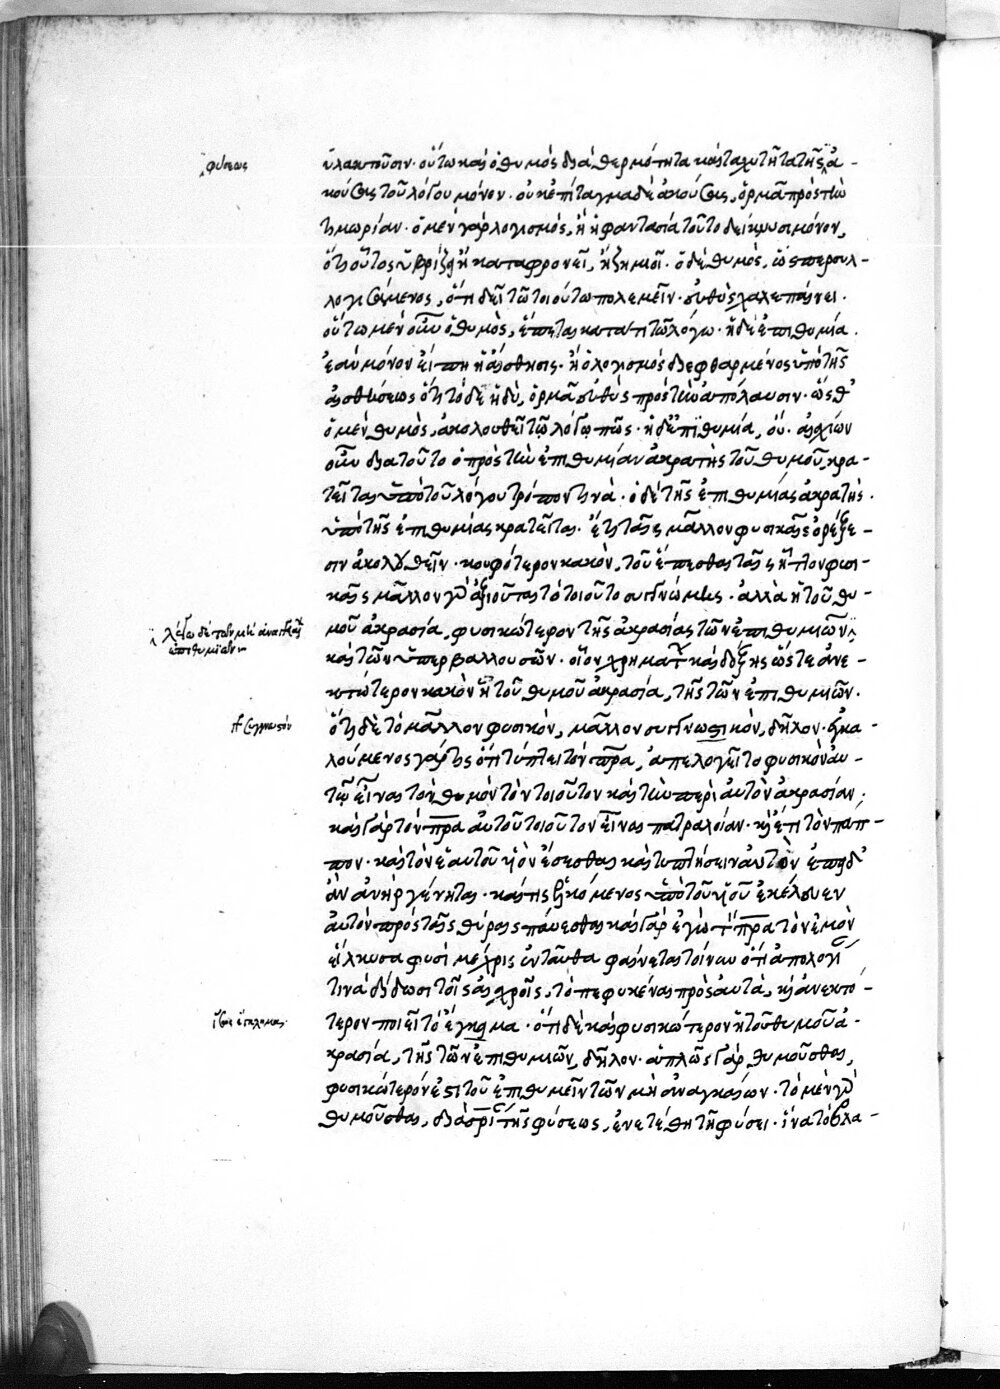 φύσεως
ὑλακτοῦσιν· οὕτω καὶ ὁ θυμὸς διὰ θερμότητα καὶ ταχυτῆτα τῆς ἀ-
κούσεις τοῦ λόγου μόνον· οὐκ ἐπίταγμα δὲ ἀκούσεις, ὁρμᾶ πρὸς τὴν
τιμωρίαν· ὁ μὲν γὰρ λογισμὸς, ἢ ἡ φαντασία τοῦτο δείκνυσι μόνον,
ὅτι οὗτος ὑβρίζει ἢ καταφρονεῖ, ἢ ζημιοῖ· ὁ δὲ θυμὸς, ὥσπερ συλ-
λογισάμενος, ὅτι δεῖ τῶ τοιούτω πολεμεῖν· εὐθὺς χαλεπαίνει·
οὕτω μὲν οὖν ὁ θυμὸς, ἕπεται κατά τι τῶ λόγω· ἡ δὲ ἐπιθυμία·
ἐὰν μόνον εἴπη ἡ αἴσθησις· ἢ ὁ λογισμὸς διεφθαρμένος ὑπὸ τῆς
αἰσθήσεως ὅτι τόδε ἡδὺ, ὁρμᾶ εὐθὺς πρὸς τὴν ἀπόλαυσιν· ὥσθ'
ὁ μὲν θυμὸς, ἀκολουθεῖ τῷ λόγῳ πῶς· ἡ δ' ἐπιθυμία, οὔ· αἰσχίων
οὖν διὰ τοῦτο ὁ πρὸς τὴν ἐπιθυμίαν ἀκρατὴς τοῦ θυμοῦ, κρα-
τεῖται ὑπὸ τοῦ λόγου τρόπον τινὰ· ὁ δὲ τῆς ἐπιθυμίας ἀκρατὴς·
ὑπὸ τῆς ἐπιθυμίας κρατεῖται· ἔτι ταῖς μᾶλλον φυσικαῖς ὀρέξε-
σιν ἀκολουθεῖν· κουφότερον κακὸν, τοῦ ἕπεσθαι ταῖς ἧττον φυσι-
καῖς μᾶλλον γὰρ ἀξιοῦται τὸ τοιοῦτο συγγνώμης· ἀλλὰ ἡ τοῦ θυ-
λέγω δὲ τῶν μὴ ἀναγκαίων
ἐπιθυμιῶν
μοῦ ἀκρασία, φυσικώτερον τῆς ἀκρασίας τῶν ἐπιθυμιῶν
καὶ τῶν ὑπερβαλλουσῶν· οἷον χρημάτων καὶ δόξης ὥστε ἀνε-
κτώτερον κακὸν ἡ τοῦ θυμοῦ ἀκρασία, τῆς τῶν ἐπιθυμιῶν·
ὅτι δὲ τὸ μᾶλλον φυσικὸν, μᾶλλον συγγνωστικὸν, δῆλον· ἐγκα-
λούμενος γάρ τις ὅτι τύπτει τὸν πρα, ἀπελογεῖτο φυσικὸν αὐ-
τῷ εἶναι τὸν θυμὸν τὸν τοιοῦτον καὶ τὴν περὶ αὐτὸν ἀκρασίαν·
καὶ γὰρ τὸν πρα αὐτοῦ τοιοῦτον εἶναι πατραλοίαν· καὶ ἔτι τὸν πάπ-
πον· καὶ τὸν ἑαυτοῦ υἱὸν ἔσεσθαι καὶ τυπτήσειν αὐτὸν ἐπειδ'
ἂν ἀνὴρ γένηται· καί τις ἑλκόμενος ὑπὸ τοῦ υἱοῦ ἐκέλευεν
αὐτὸν πρὸς ταῖς θύραις παύεσθαι καὶ γὰρ ἐγὼ τὸν πρα τὸν ἐμὸν
εἵλκυσα φυσὶ μέχρις ἐνταῦθα φαίνεται τοίνυν ὅτι ἀπολογί
τινὰ δίδωσι τοῖς αἰσχροῖς, τὸ πεφυκέναι πρὸς αὐτὰ, καὶ ἀνεκτό-
τερον ποιεῖ τὸ ἔγκλημα· ὅτι δὲ καὶ φυσικώτερον ἡ τοῦ θυμοῦ ἀ-
κρασία, τῆς τῶν ἐπιθυμιῶν, δῆλον· ἁπλῶς γὰρ θυμοῦσθαι,
φυσικώτερόν ἐστι τοῦ ἐπιθυμεῖν τῶν μὴ ἀναγκαίων· τὸ μὲν γὰρ
θυμοῦσθαι, διὰ σρίας τῆς φύσεως, ἐνετέθη τῆ φύσει· ἵνα τὸ βλα-